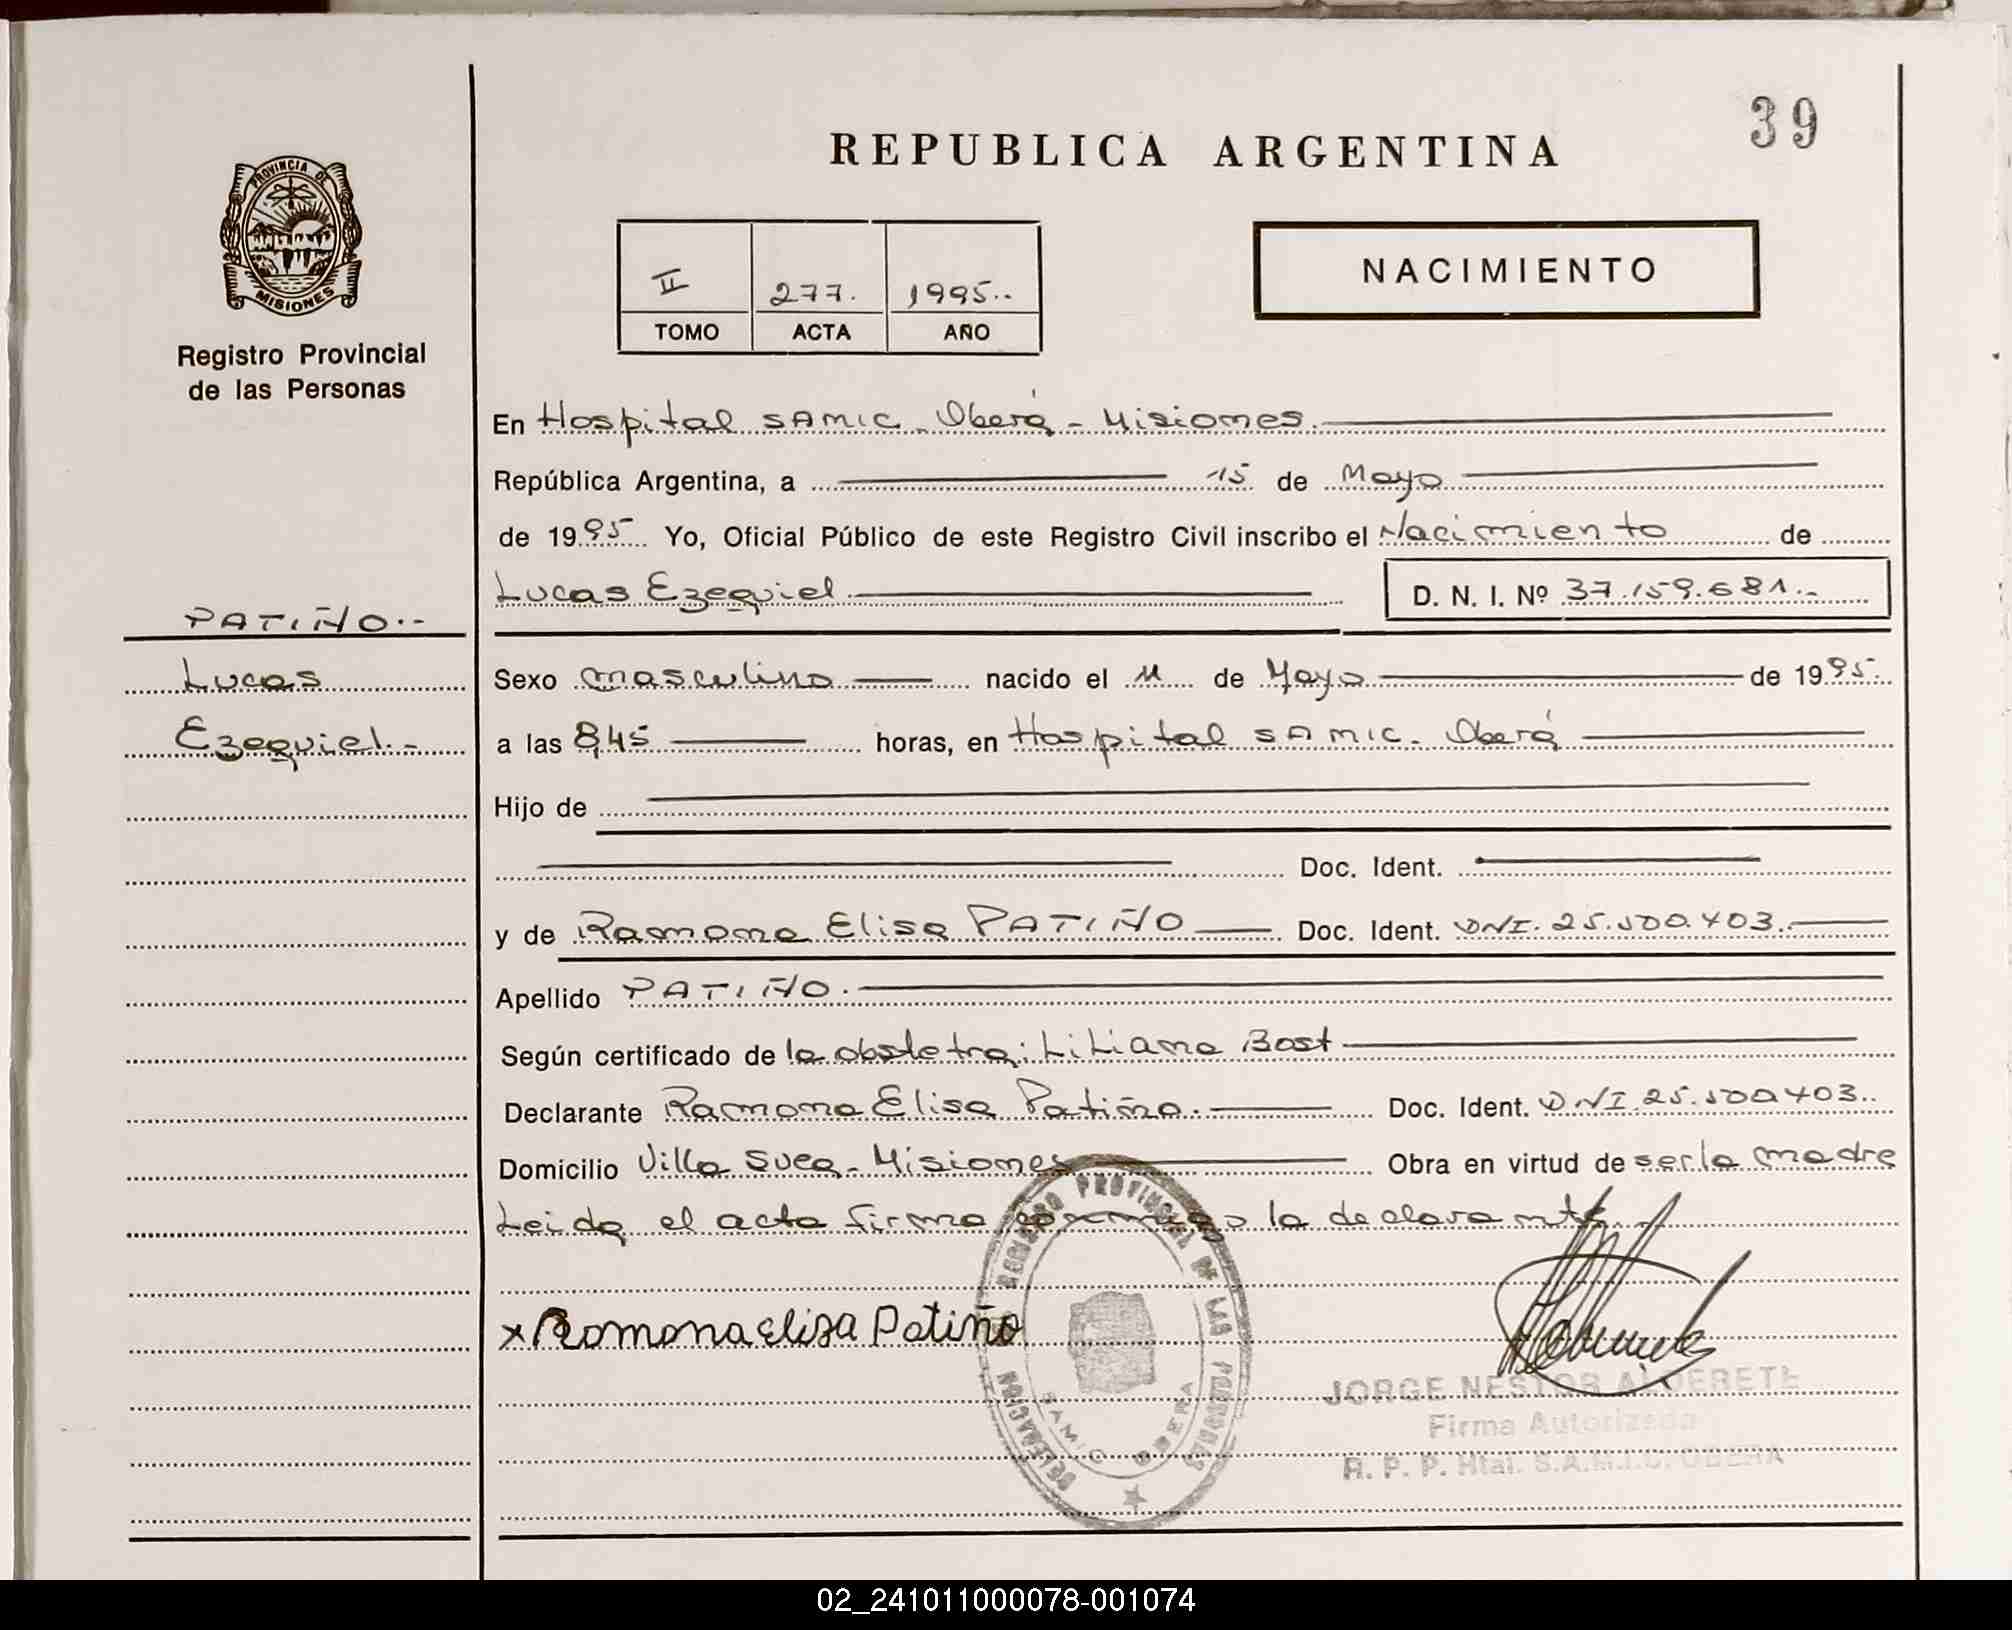 39
REPUBLICA ARGENTINA
PROVINCIA DE
MISIONES
Registro Provincial
de las Personas
II 277. 1995..
TOMO ACTA AÑO
NACIMIENTO
En Hospital SAMIC - Oberá - Misiones.
República Argentina, a 15 de Mayo
de 1995 Yo, Oficial Público de este Registro Civil inscribo el Nacimiento de
Lucas Ezequiel D. N. I. Nº 37.159.681.-
PATIÑO.-
Lucas
Ezequiel.-
Sexo masculino nacido el 11 de Mayo de 1995.
a las 8,45 horas, en Hospital SAMIC. Oberá
Hijo de
Doc. Ident.
y de Ramona Elisa PATIÑO Doc. Ident. DNI. 25.500.403.
Apellido PATIÑO.
Según certificado de la obstetra: Liliana Bost
Declarante Ramona Elisa Patiño. Doc. Ident. DNI 25.500.403..
Domicilio Villa Svea - Misiones Obra en virtud de ser la madre
Leida el acta firma conmigo la declarante.
x Romona eliza Patiño
REGISTRO PROVINCIAL DE LAS PERSONAS
DELEGACION
SAMIC OBERA
JORGE NESTOR ALDERETE
Firma Autorizada
R. P. P. Htal. S.A.M.I.C. OBERA
02_241011000078-001074